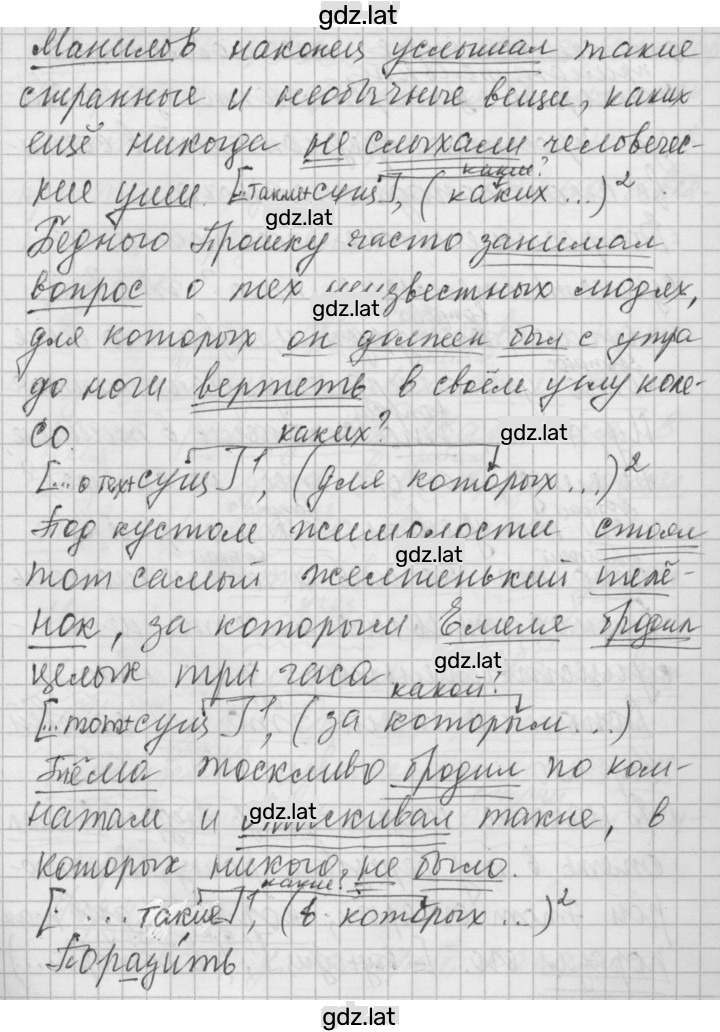 gdz.lat
Манилов наконец услышал такие
странные и необычные вещи, каких
ещё никогда не слыхали человечес-
кие уши. [...такие+сущ], (каких ...)²
какие?
gdz.lat
Бедного Прошку часто занимал
вопрос о тех неизвестных людях,
gdz.lat
для которых он должен был с утра
до ночи вертеть в своём углу коле-
со. каких? gdz.lat
[... о тех+сущ]¹, (для которых ...)²
Под кустом жимолости стоял
gdz.lat
тот самый желтенький телё-
нок, за которым Емеля бродил
целых три часа gdz.lat
какой?
[... тот+сущ]¹, (за которым ...)
Тёма тоскливо бродил по ком-
натам и отыскивал такие, в
gdz.lat
которых никого не было.
какие?
[. ... такие]¹, (в которых ...)²
gdz.lat
Поразить
gdz.lat